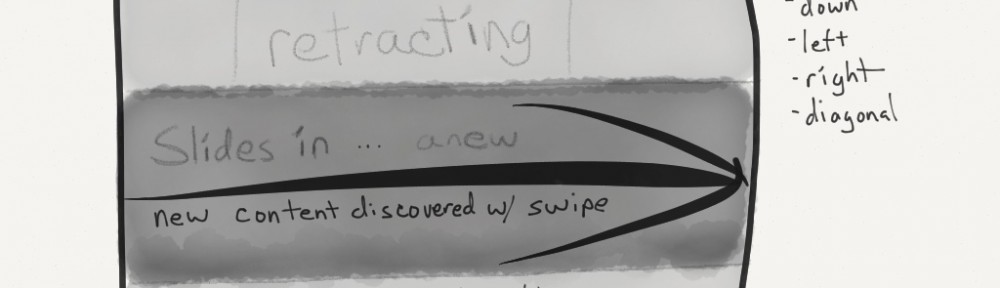 retracting
Slides in ... anew
new content discovered w/ swipe
- down
- left
- right
- diagonal